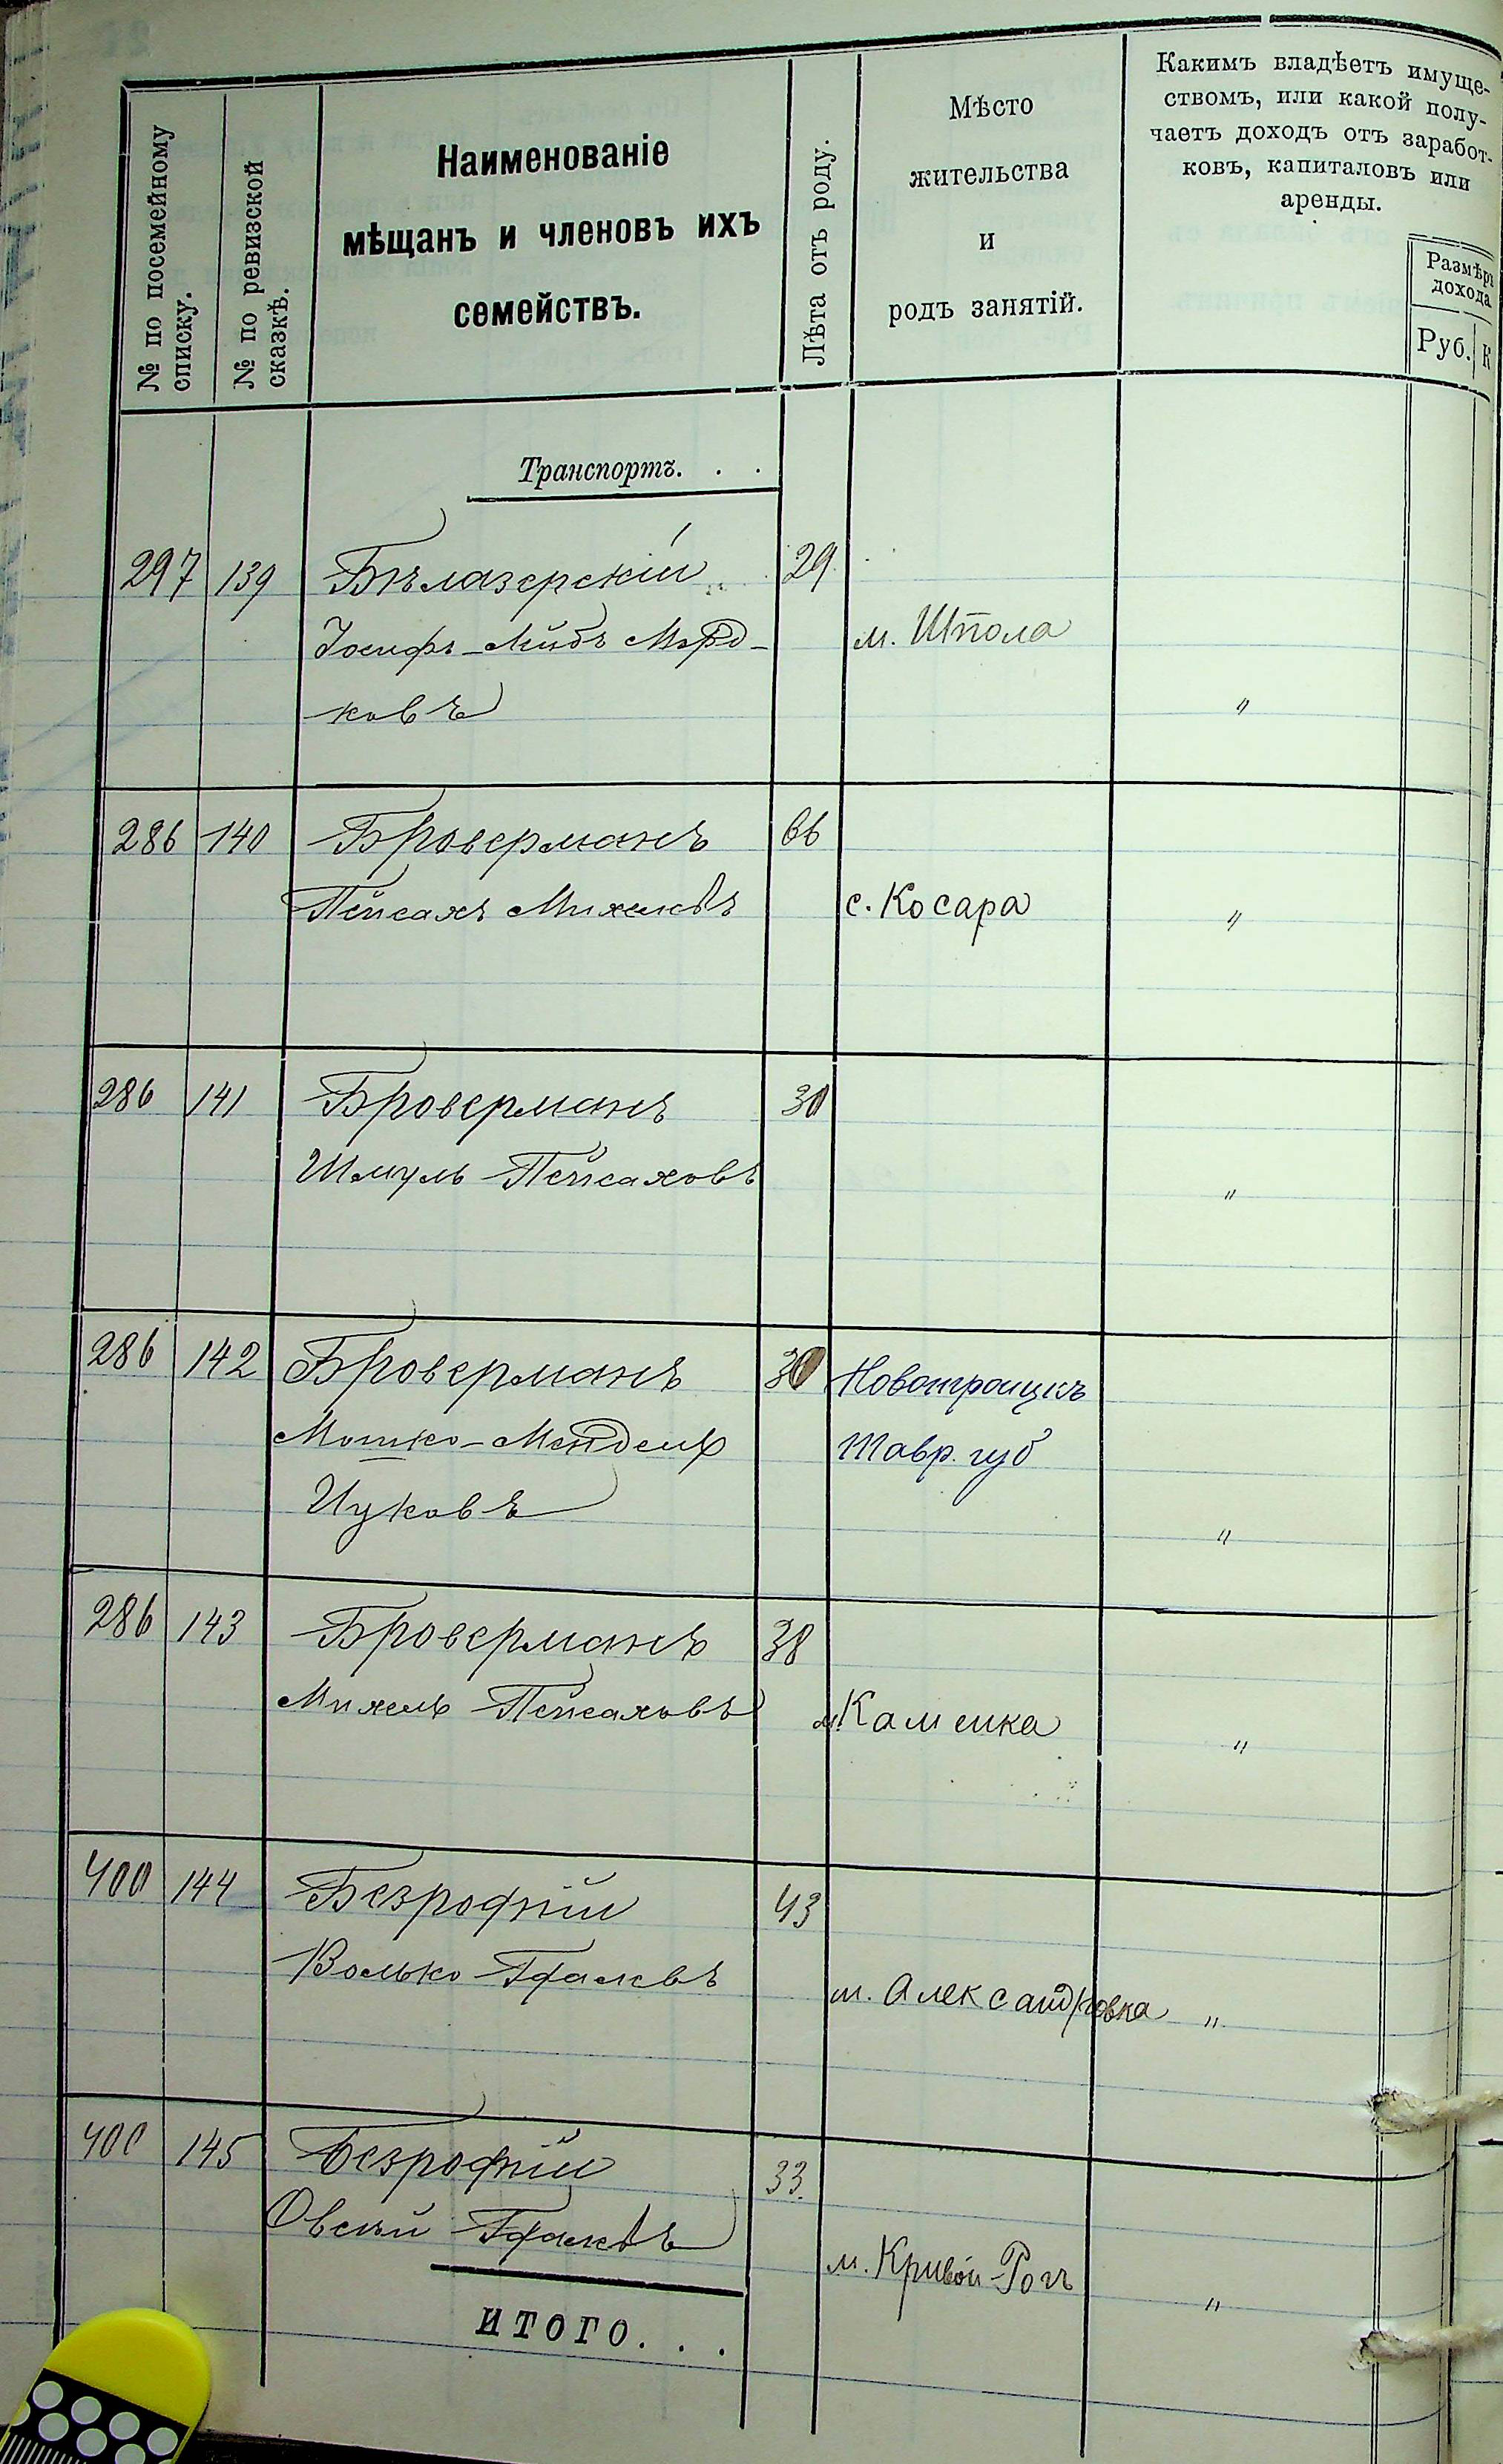 № по посемейному
списку.
№ по ревизской
сказкѣ.
Наименованіе
мѣщанъ и членовъ ихъ
семействъ.
Лѣта отъ роду.
Мѣсто
жительства
и
родъ занятій.
Какимъ владѣетъ имуще-
ствомъ, или какой полу-
чаетъ доходъ отъ заработ-
ковъ, капиталовъ или
аренды.
Размѣръ
дохода
Руб. К
Транспортъ. . .
297 139 Бѣлазерскій 29
Іосифъ-Лейбъ Морд- м. Шпола
ковъ "
286 140 Броверманъ 66
Пейсахъ Михелевъ с. Косара "
286 141 Броверманъ 30
Шмуль Пейсаховъ "
286 142 Броверманъ 30 Новотроицкъ
Мошко-Мендель Тавр. губ
Ицковъ "
286 143 Броверманъ 38
Михель Пейсаховъ м. Каменка "
400 144 43
Волько м. Александровка "
400 145 33.
Овсей м. Кривой-Рогъ "
ИТОГО. . .